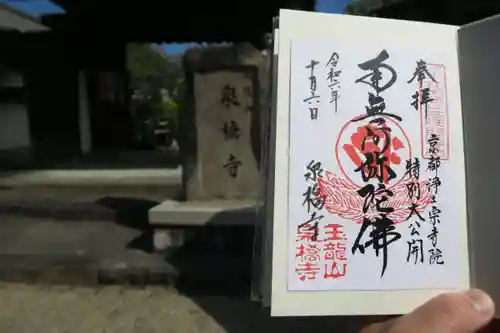 泉橋寺
奉拝
京都浄土宗寺院
特別大公開
南無阿弥陀佛
令和六年
十月六日
泉橋寺
玉龍山
泉橋寺